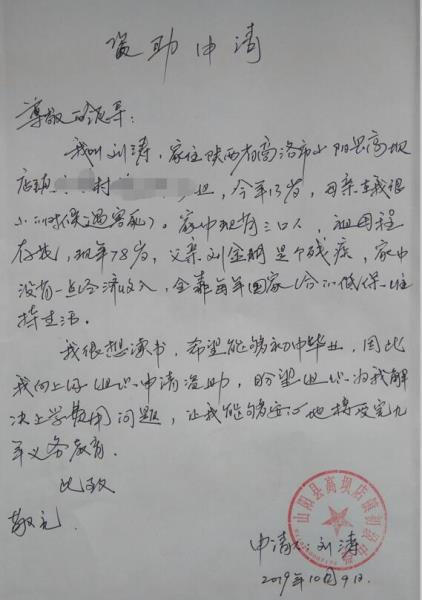 资助申请
尊敬的领导:
我叫刘涛,家住陕西省商洛市山阳县高坝
店镇 村 组,今年13岁,母亲在我很
小的时候遇害死)。家中现有三口人,祖母程
存 ,现年78岁,父亲刘金朋是个残疾,家中
没有一点经济收入,全靠每年国家给的低保维
持生活。
我很想读书,希望能够初中毕业,因此
我向上级组织申请资助,盼望组织为我解
决上学费用问题,让我能够安心地接受完九
年义务教育。
此致
敬礼
山阳县高坝店镇初级中学
申请人:刘涛
2019年10月9日.